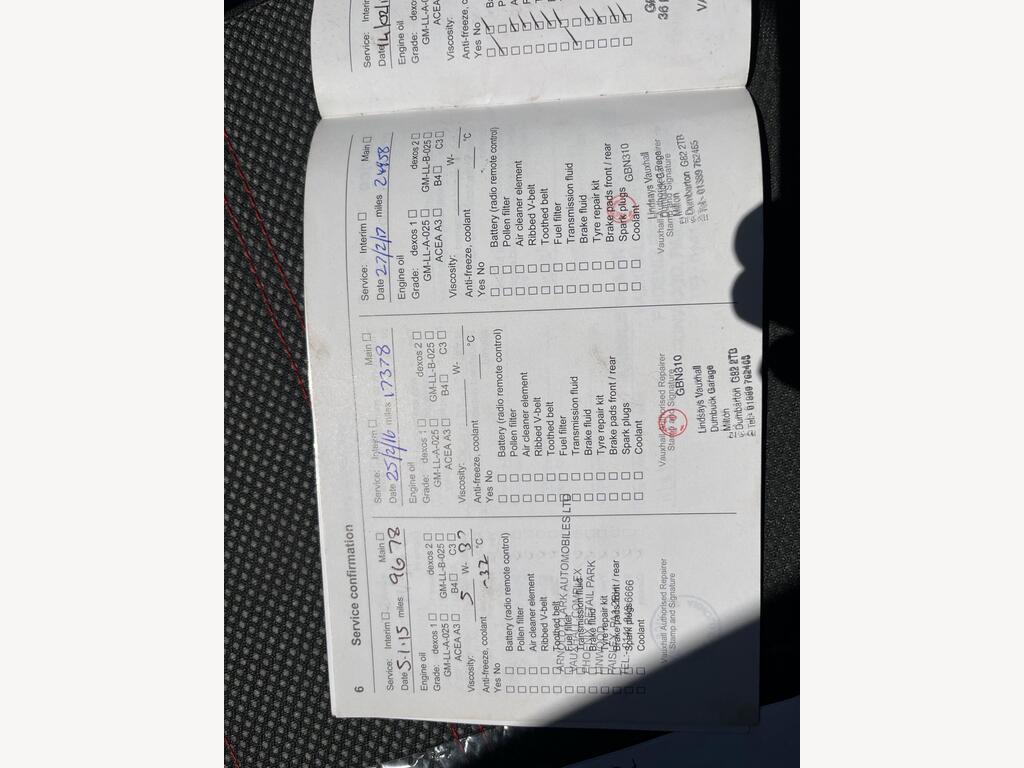 6 Service confirmation
Service: Interim □ Main □
Date 5.1.15 miles 9678
Engine oil
Grade: dexos 1 □ dexos 2 □
GM-LL-A-025 □ GM-LL-B-025 □
ACEA A3 □ B4 □ C3 □
Viscosity: 5 W- 30
Anti-freeze, coolant -32 °C
Yes No
□ □ Battery (radio remote control)
□ □ Pollen filter
□ □ Air cleaner element
□ □ Ribbed V-belt
□ □ Toothed belt
□ □ Fuel filter
□ □ Transmission fluid
□ □ Brake fluid
□ □ Tyre repair kit
□ □ Brake pads front / rear
□ □ Spark plugs
□ □ Coolant
ARNOLD CLARK AUTOMOBILES LTD
VAUXHALL COMPLEX
RETAIL PARK
LINWOOD
PAISLEY
TEL:
Vauxhall Authorised Repairer
Stamp and Signature
Service: Interim □ Main □
Date 25/2/16 miles 17378
Engine oil
Grade: dexos 1 □ dexos 2 □
GM-LL-A-025 □ GM-LL-B-025 □
ACEA A3 □ B4 □ C3 □
Viscosity: W-
Anti-freeze, coolant °C
Yes No
□ □ Battery (radio remote control)
□ □ Pollen filter
□ □ Air cleaner element
□ □ Ribbed V-belt
□ □ Toothed belt
□ □ Fuel filter
□ □ Transmission fluid
□ □ Brake fluid
□ □ Tyre repair kit
□ □ Brake pads front / rear
□ □ Spark plugs
□ □ Coolant
Vauxhall Authorised Repairer
Stamp and Signature
GBN310
Lindsays Vauxhall
Dumbuck Garage
Milton
Dumbarton G82 2TB
Tel: 01389 762465
Service: Interim □ Main □
Date 27/2/17 miles 24958
Engine oil
Grade: dexos 1 □ dexos 2 □
GM-LL-A-025 □ GM-LL-B-025 □
ACEA A3 □ B4 □ C3 □
Viscosity: W-
Anti-freeze, coolant °C
Yes No
□ □ Battery (radio remote control)
□ □ Pollen filter
□ □ Air cleaner element
□ □ Ribbed V-belt
□ □ Toothed belt
□ □ Fuel filter
□ □ Transmission fluid
□ □ Brake fluid
□ □ Tyre repair kit
□ □ Brake pads front / rear
□ □ Spark plugs
□ □ Coolant
GBN310
Lindsays Vauxhall
Vauxhall Authorised Repairer
Dumbuck Garage
Stamp and Signature
Milton
Dumbarton G82 2TB
Tel: 01389 762465
Service: Interim
Date
Engine oil
Grade: dexos
GM-LL-A-0
ACEA
Viscosity:
Anti-freeze, c
Yes No